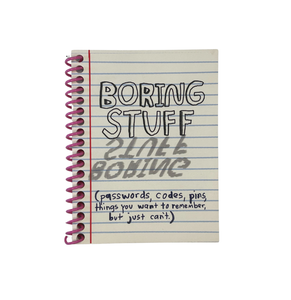 BORING
STUFF
STUFF
BORING
(passwords, codes, pins,
things you want to remember,
but just can't.)